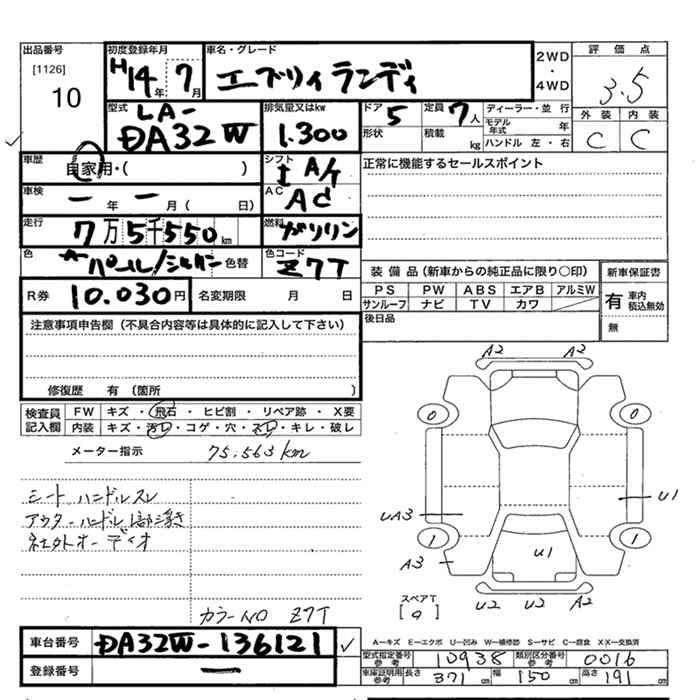 出品番号 初度登録年月 車名・グレード 2WD ・ 4WD 評価点
[1126] 10 H14年 7月 エブリィランディ 3.5
型式 排気量又はkw ドア 定員 ディーラー・並行 外装 内装
LA-DA32W 1.300 5 7人 モデル年式 年 C C
形状 積載 kg ハンドル 左・右
車歴 自家用・( ) シフト A/T 正常に機能するセールスポイント
車検 ー年 ー月( 日) AC AC
走行 7万5千550km 燃料 ガソリン
色 パール/シルバー 色替 色コード Z7T
R券 10.030円 名変期限 月 日
装備品(新車からの純正品に限り○印) 新車保証書
PS PW ABS エアB アルミW 有 車内 積込無効
サンルーフ ナビ TV カワ 無
後日品
注意事項申告欄(不具合内容等は具体的に記入して下さい)
修復歴 有(箇所 )
検査員記入欄 FW キズ・飛石・ヒビ割・リペア跡・X要
内装 キズ・汚レ・コゲ・穴・スレ・キレ・破レ
メーター指示 75.563km
シートハンドルスレ
アウターハンドル1部浮き
社外オーディオ
カラーNO Z7T
A2 A2
0 0
U1
UA3
1 1
U1
A3
スペアT
[0] U2 U2 A2
車台番号 DA32W-136121
登録番号 ー
A-キズ E-エクボ U-凹み W-補修跡 S-サビ C-腐食 XX-交換済
型式指定番号 参考 10938 類別区分番号 参考 0016
車庫証明用 参考 長さ 371cm 幅 150cm 高さ 191cm